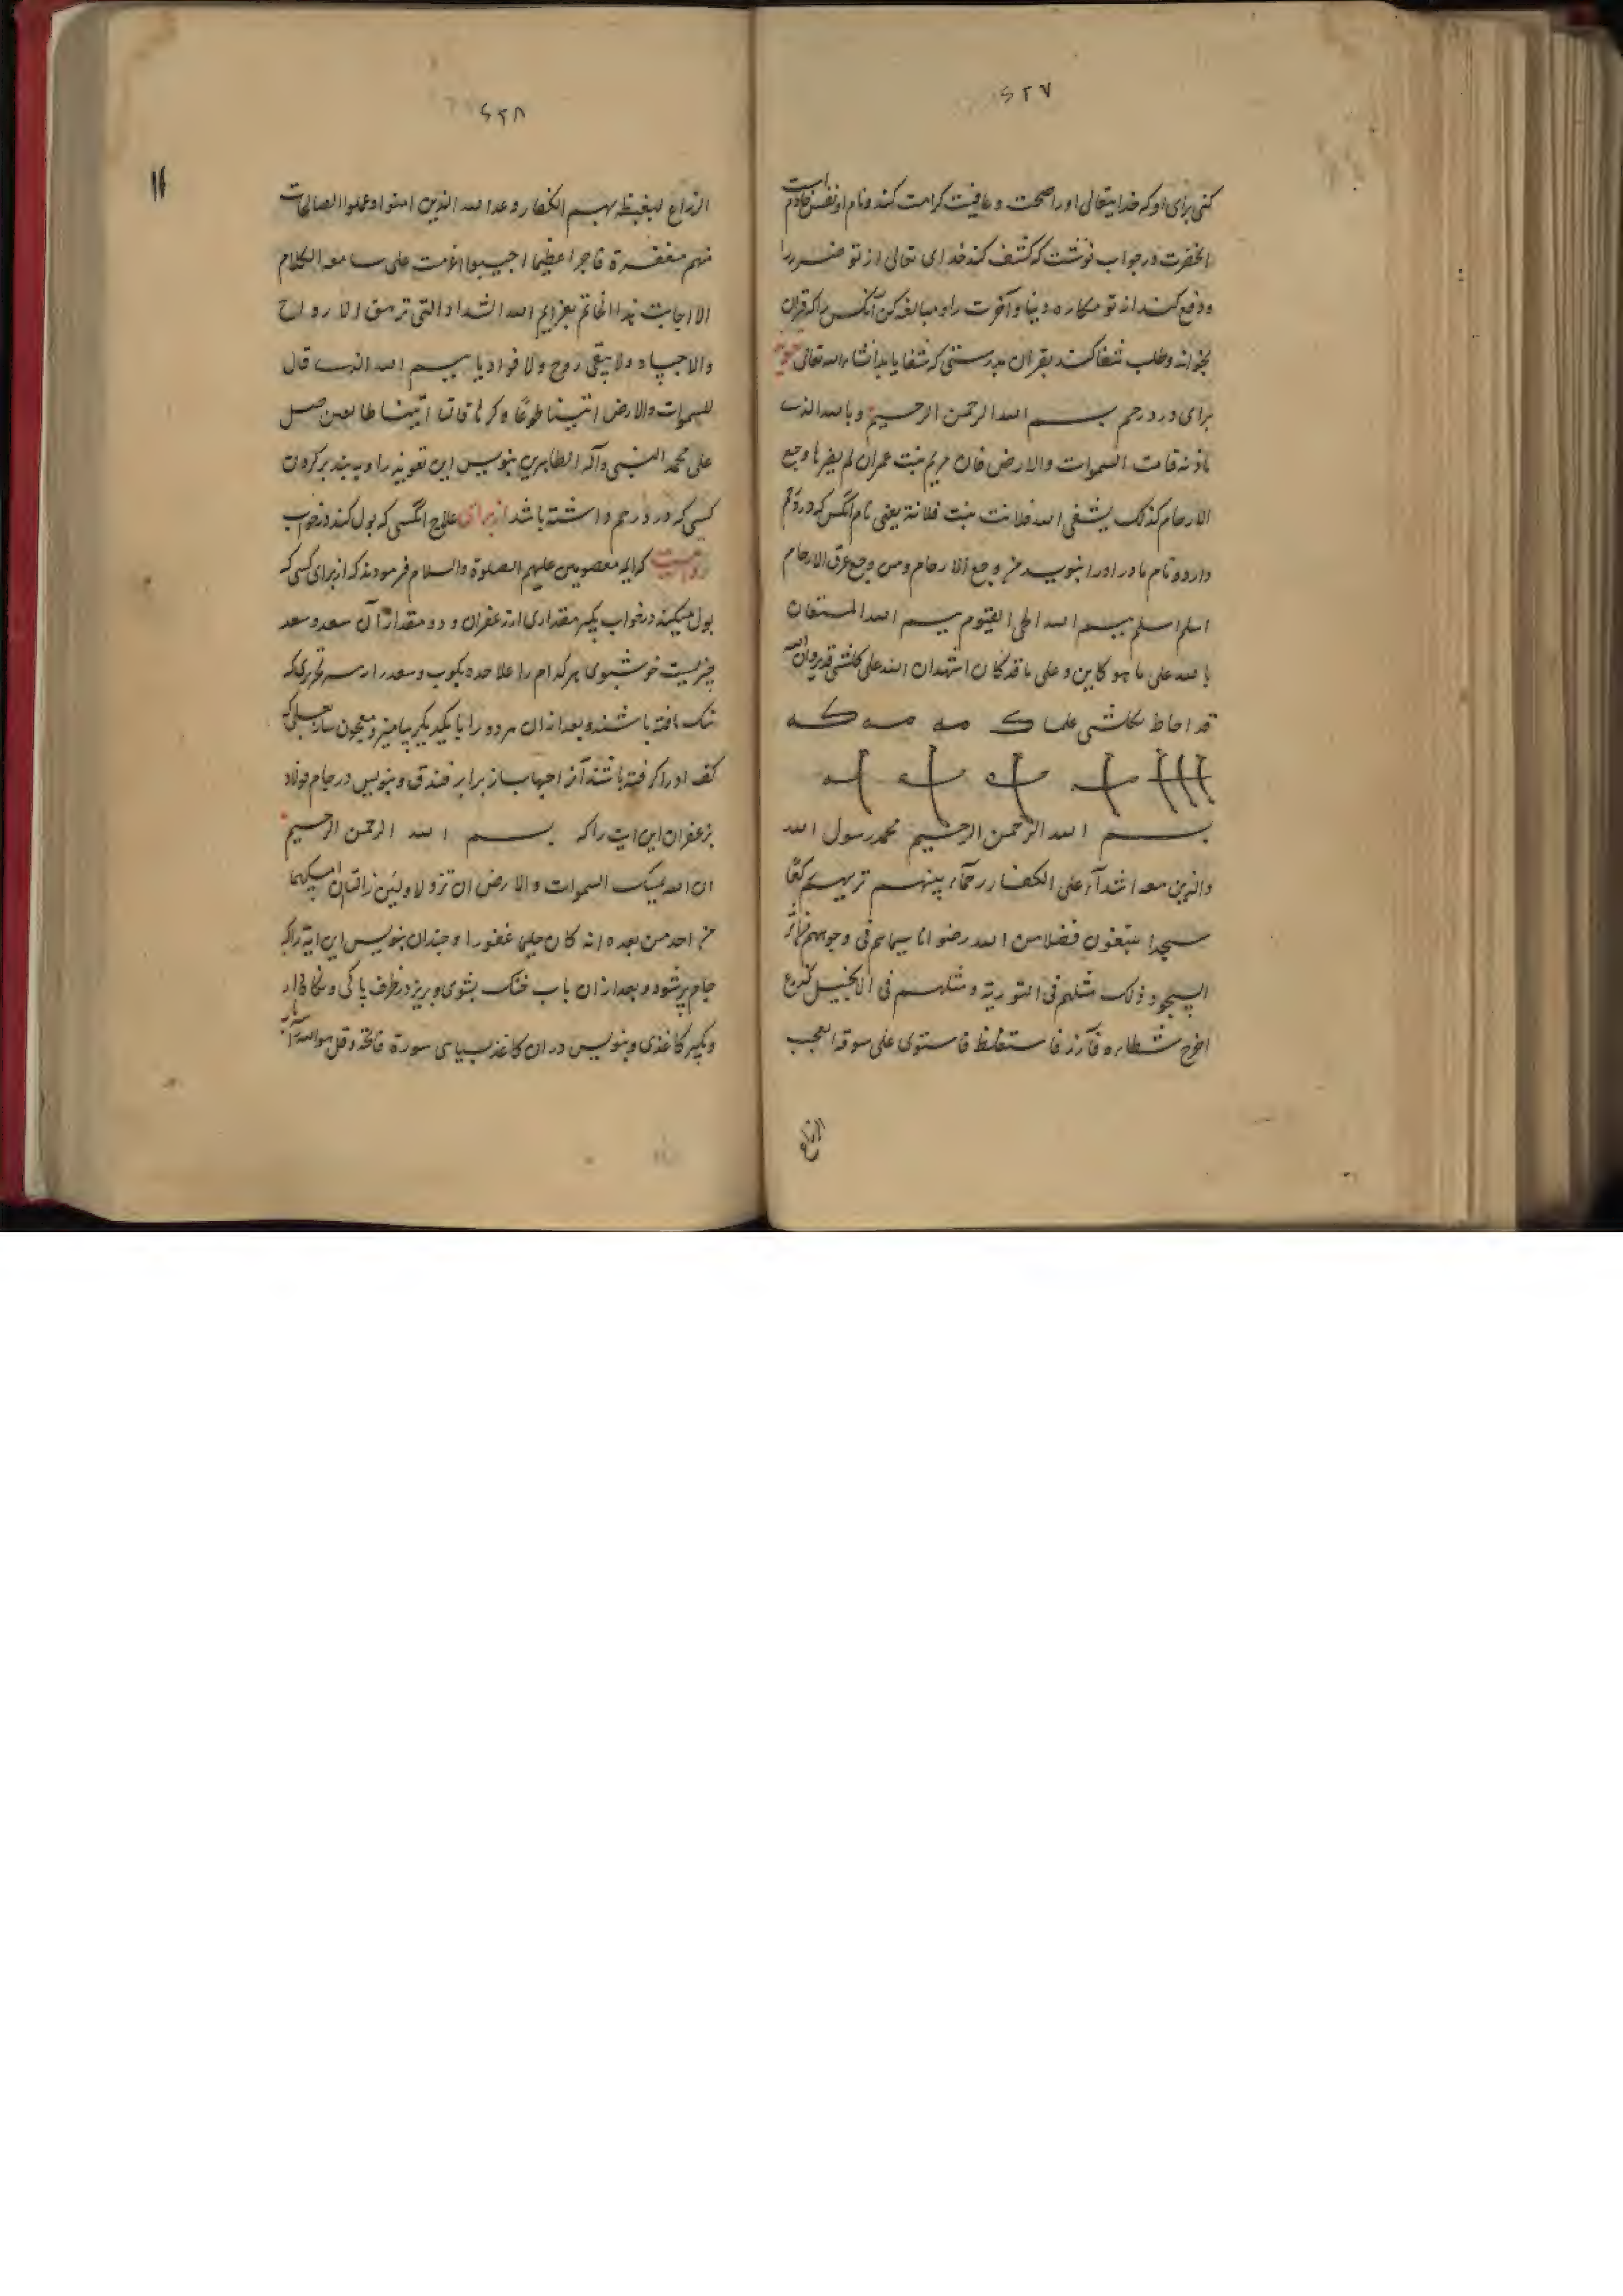 ۶۲۷
کنی برای او که خدایتعالی او را صحت و عافیت کرامت کند و نام او نفیس خادم است
انحضرت در جواب نوشت که کشف کند خدای تعالی از تو ضرر را
و دفع کند از تو مکاره دنیا و آخرت را و مبالغه کن آنکس را که قران
بخواند و طلب شفا کند بقران بدرستی که شفا یابد انشاء الله تعالی تعویذ
برای درد رحم بسم الله الرحمن الرحیم و بالله الذی
باذنه قامت السموات والارض فان مریم بنت عمران لم یضرها وجع
الارحام کذلک یشفی الله فلانت بنت فلانة یعنی نام انکس که درد رحم
دارد و نام مادر او را بنویسد من وجع الارحام ومن وجع عرق الارحام
اسلم اسلم بسم الله الحی القیوم بسم الله المستعان
بالله علی ما هو کاین و علی ما قد کان اشهد ان الله علی کلشی قدیر وان الله
قد احاط بکلشی علما
بسم الله الرحمن الرحیم محمد رسول الله
والذین معه اشدآء علی الکفار رحمآء بینهم تریهم رکعا
سجدا یبتغون فضلا من الله رضوانا سیماهم فی وجوههم من اثر
السجود ذلک مثلهم فی التوریة و مثلهم فی الانجیل کزرع
اخرج شطاره فآزره فاستغلظ فاستوی علی سوقه یعجب
الزراع
۶۲۸
۱۴
الزراع لیغیظ بهم الکفار وعد الله الذین امنوا وعملوا الصالحات
منهم مغفرة فاجرا عظیما اجیبوا عزمت علی سامعه الکلام
الا اجابت لهذا الخاتم بعزایم الله الشداد التی تزهق الارواح
والاجساد ولا یبقی روح ولا فواد یا بسم الله الذی قال
للسموات والارض ائتینا طوعا و کرها قالتا اتینا طایعین صل
علی محمد النبی وآله الطاهرین بنویس این تعویذ را و به بند بر گردن
کسی که درد رحم داشته باشد از برای علاج انکسی که بول کند در خواب
روایت که ایمه معصومین علیهم الصلوة والسلام فرمودند که از برای کسی که
بول میکند در خواب بگیر مقداری از زعفران و دو مقدار آن سعد و سعد
چیزیست خوشبوی هر کدام را علاحده بکوب و سعد را
باشند و بعد از آن هر دو را با یکدیگر بیامیز و معجون ساز بعسلی که
کف او را گرفته باشند آنرا حبها ساز برابر فندق و بنویس در جام فولاد
بزعفران این ایت را که بسم الله الرحمن الرحیم
ان الله یمسک السموات والارض ان تزولا و لین زالتا ان امسکهما
من احد من بعده انه کان حلیما غفورا و چندان بنویس این ایة را که
جام پر شود و بعد از آن باب خنک بشوی و بریز در ظرف پاکی و نگاه دار
و بگیر کاغذی و بنویس در آن کاغذ بسیاهی سورة فاتحة و قل هو الله